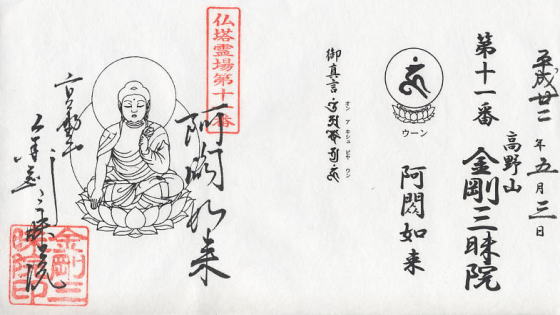 平成廿二年五月三日
高野山
第十一番 金剛三昧院
ウーン
阿閦如来
御真言
オン ア キシュ ビヤ ウン
仏塔霊場第十一番
阿閦如来
高野山
金剛三昧院
金剛三昧院印